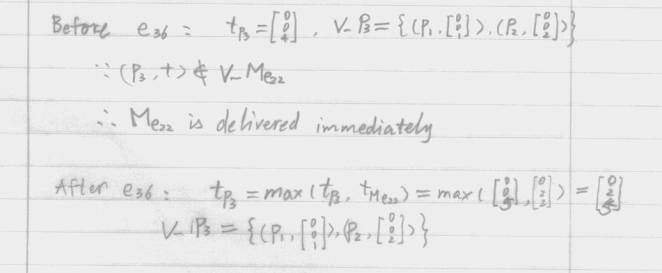 Before e36 : tP3 = [0 0 4] , V_P3 = {(P1, [0 0 1]), (P2, [0 0 2])}
∵ (P3, t) ∉ V_Me22
∴ Me22 is delivered immediately
After e36 : tP3 = max(tP3, tMe22) = max([0 0 5], [0 2 2]) = [0 2 5]
V_P3 = {(P1, [0 0 1]), (P2, [0 0 2])}